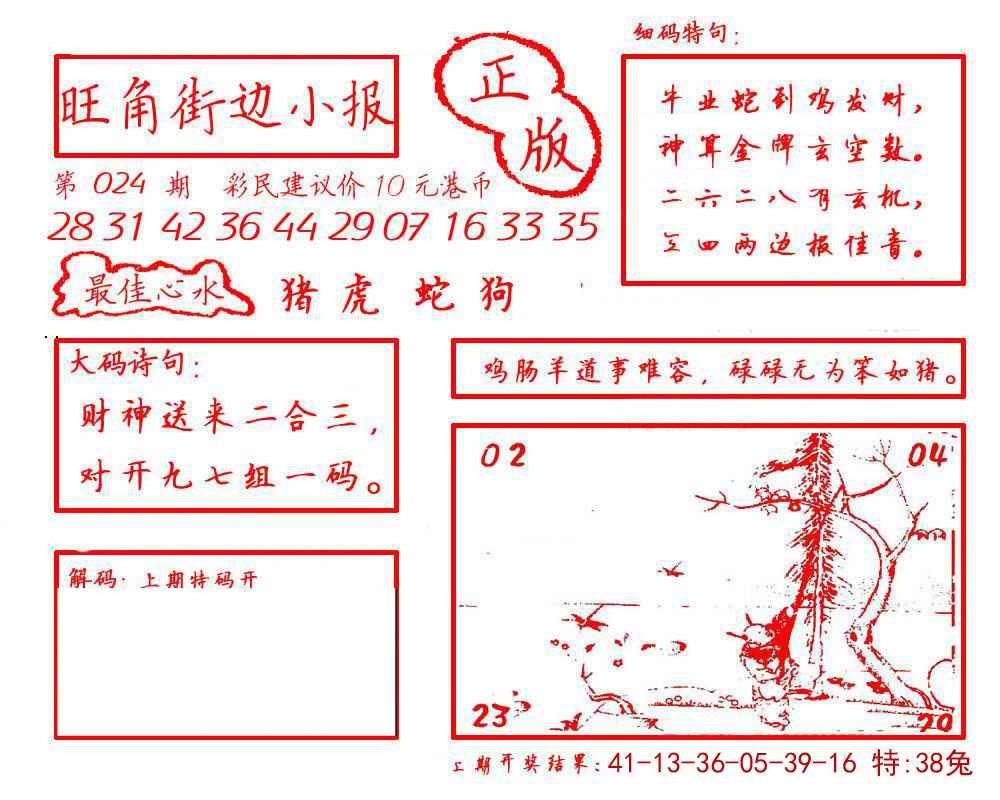 细码特句：
正版
旺角街边小报
牛业蛇到鸡发财，
神算金牌玄空数。
第 024 期 彩民建议价10元港币
二六二八有玄机，
28 31 42 36 44 29 07 16 33 35
三四两边报佳音。
最佳心水 猪 虎 蛇 狗
大码诗句：
鸡肠羊道事难容，碌碌无为笨如猪。
财神送来二合三，
对开九七组一码。
02 04
解码·上期特码开
23 20
上期开奖结果：41-13-36-05-39-16 特:38兔